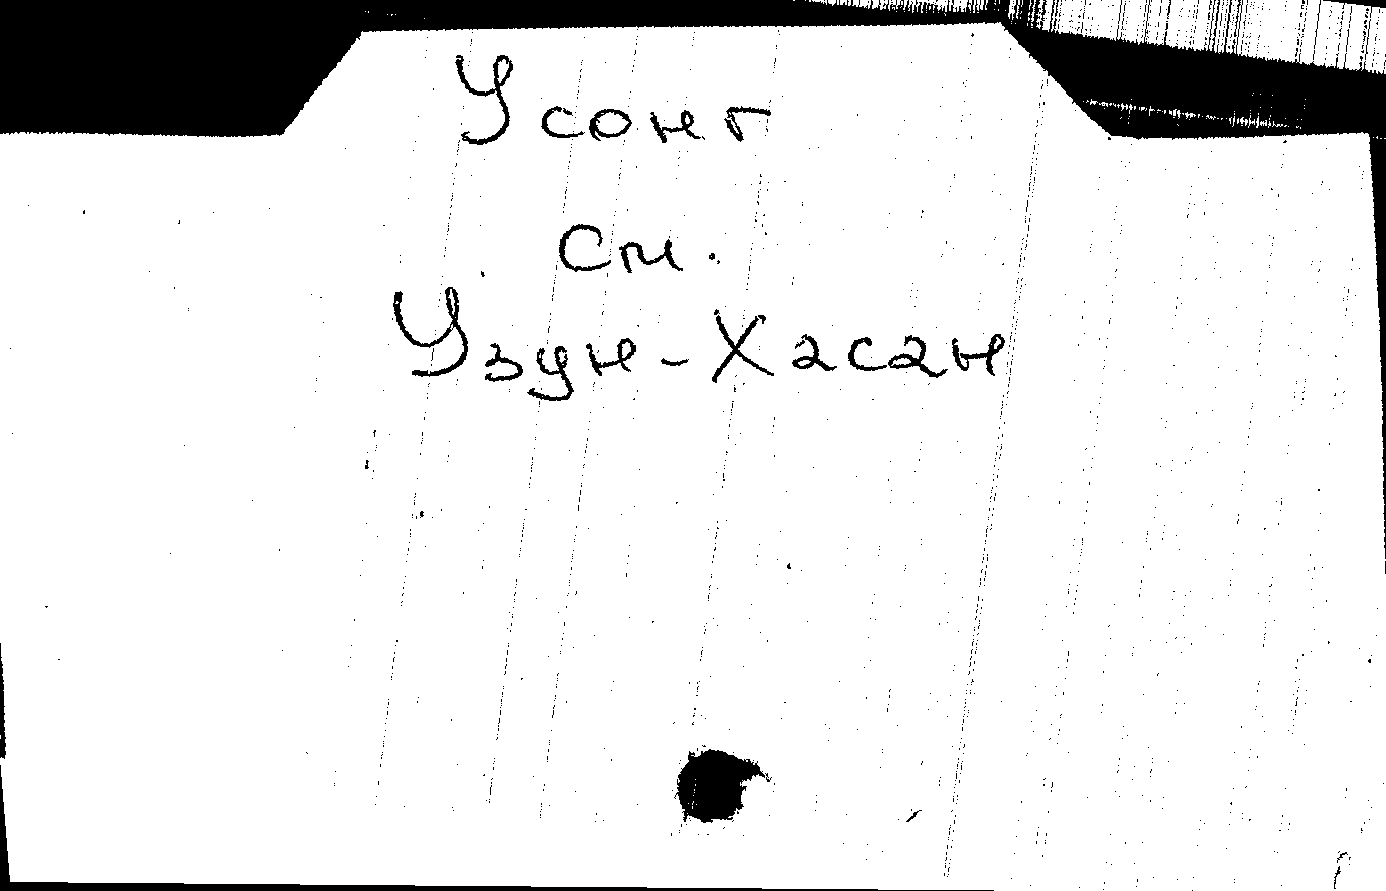 Усонг
см.
Узун-Хасан